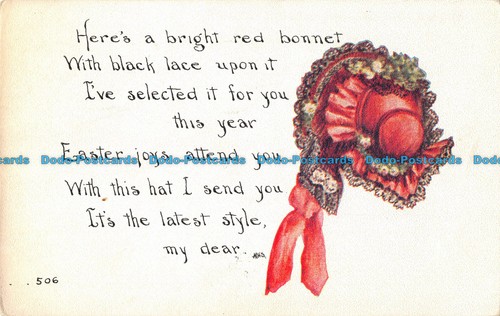 Here's a bright red bonnet
With black lace upon it
I've selected it for you
this year
Easter joys attend you
With this hat I send you
It's the latest style,
my dear.
. . 506
Dodo-Postcards Dodo-Postcards Dodo-Postcards Dodo-Postcards